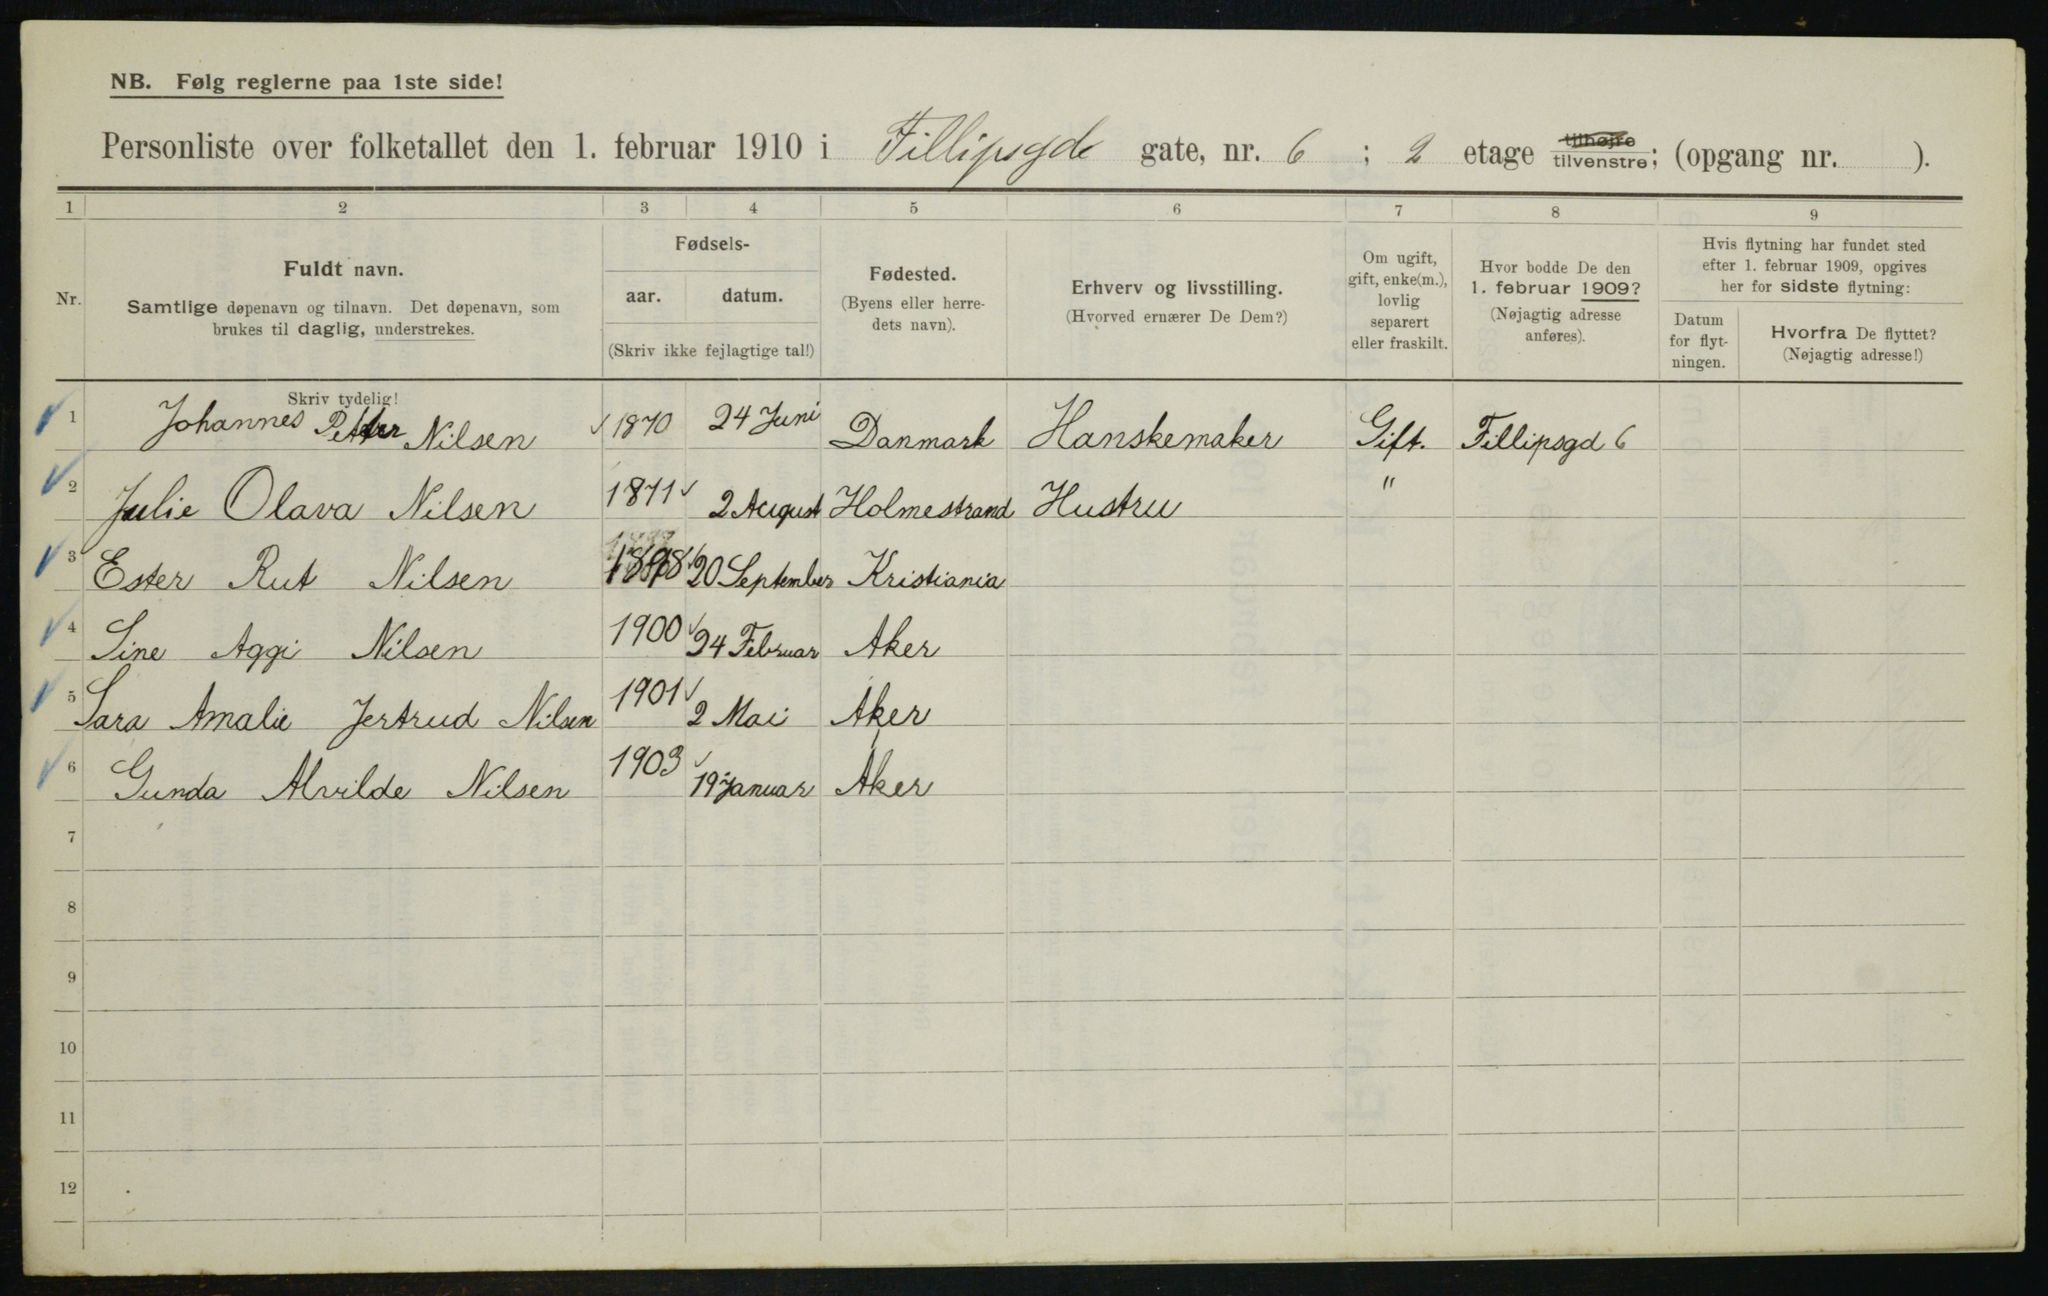 NB. Følg reglerne paa 1ste side!
Personliste over folketallet den 1. februar 1910 i Fillipsgde gate, nr. 6 ; 2 etage tilhøjre tilvenstre; (opgang nr. ).
1 2 3 4 5 6 7 8 9
Nr.
Fuldt navn.
Samtlige døpenavn og tilnavn. Det døpenavn, som
brukes til daglig, understrekes.
Fødsels-
aar. datum.
(Skriv ikke fejlagtige tal!)
Fødested.
(Byens eller herre-
dets navn).
Erhverv og livsstilling.
(Hvorved ernærer De Dem?)
Om ugift,
gift, enke(m.),
lovlig
separert
eller fraskilt.
Hvor bodde De den
1. februar 1909?
(Nøjagtig adresse
anføres).
Hvis flytning har fundet sted
efter 1. februar 1909, opgives
her for sidste flytning:
Datum
for flyt-
ningen.
Hvorfra De flyttet?
(Nøjagtig adresse!)
Skriv tydelig!
1 Johannes Petter Nilsen 1870 24 Juni Danmark Hanskemaker Gift. Fillipsgd 6
2 Julie Olava Nilsen 1871 2 August Holmestrand Hustru "
3 Ester Rut Nilsen 1898 20 September Kristiania
4 Sine Aggi Nilsen 1900 24 Februar Aker
5 Sara Amalie Jertrud Nilsen 1901 2 Mai Aker
6 Gunda Alvilde Nilsen 1903 19 Januar Aker
7
8
9
10
11
12